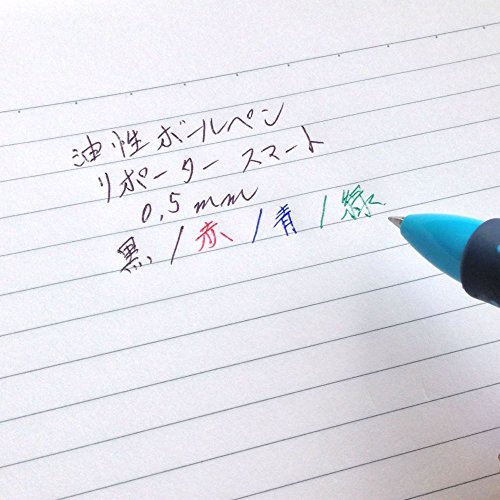 油性ボールペン
リポーター スマート
0.5mm
黒/赤/青/緑